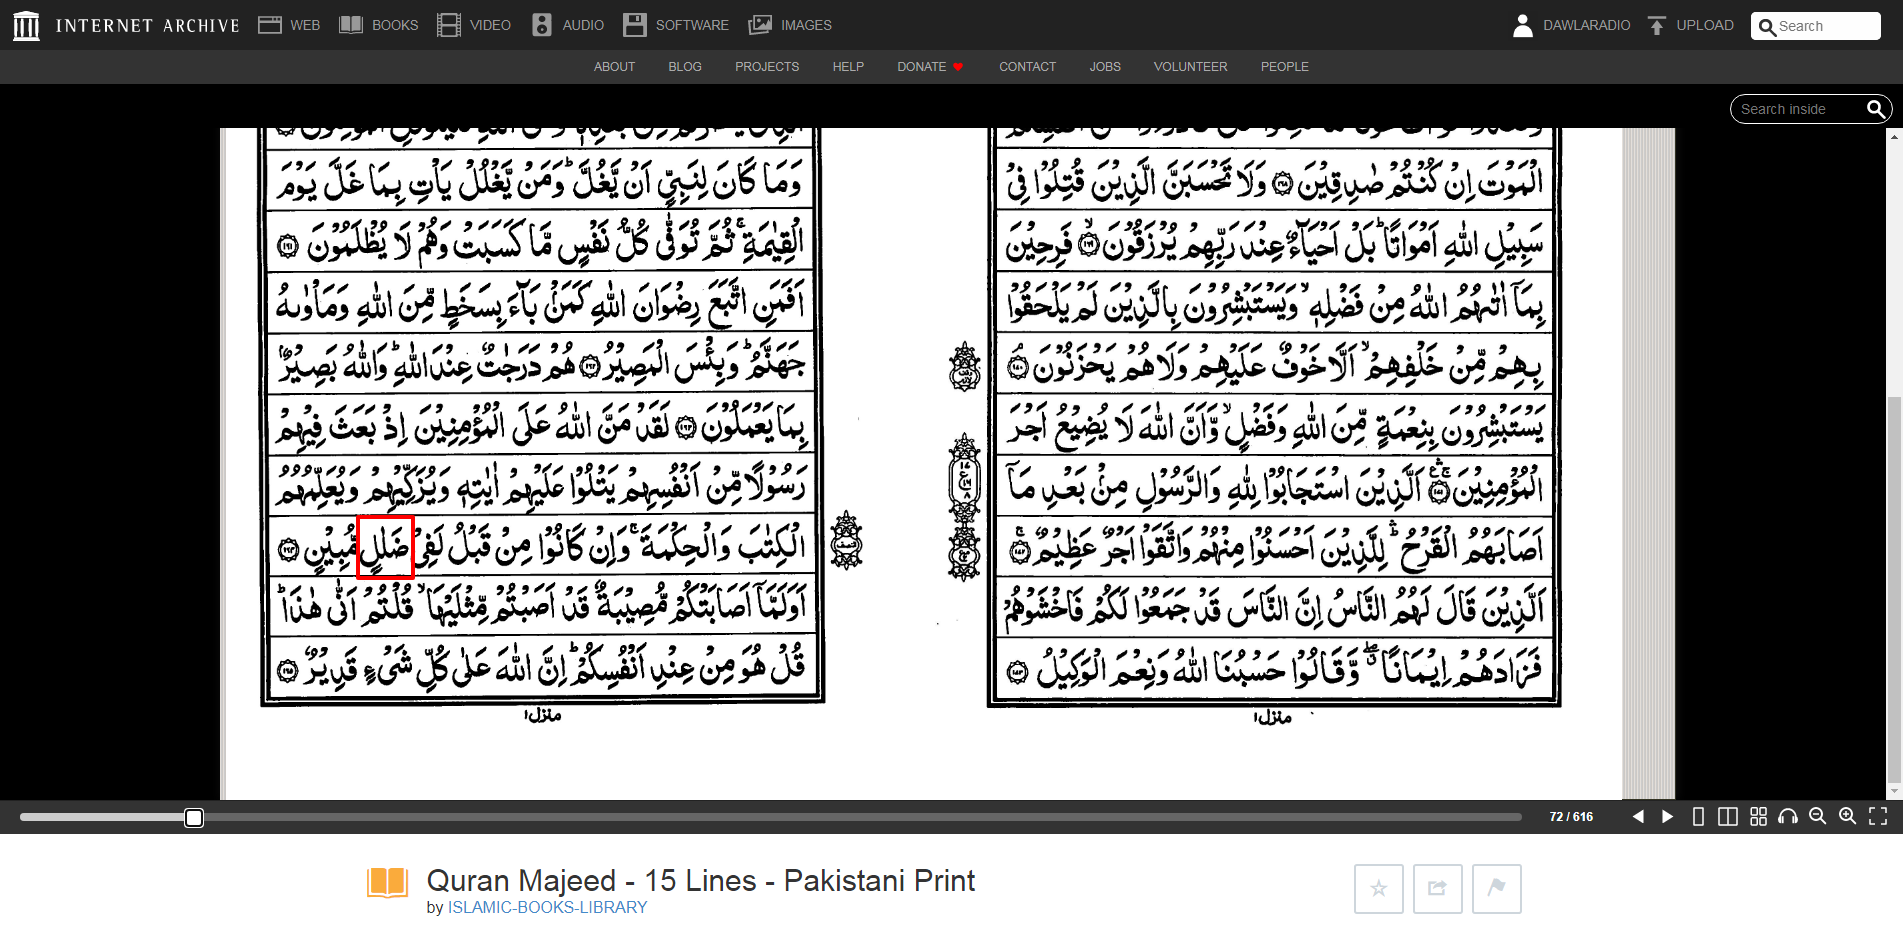 INTERNET ARCHIVE WEB BOOKS VIDEO AUDIO SOFTWARE IMAGES DAWLARADIO UPLOAD Search
ABOUT BLOG PROJECTS HELP DONATE CONTACT JOBS VOLUNTEER PEOPLE
Search inside
الْمَوْتَ اِنْ كُنْتُمْ صٰدِقِيْنَ ۝١٦٨ وَلَا تَحْسَبَنَّ الَّذِيْنَ قُتِلُوْا فِيْ
سَبِيْلِ اللّٰهِ اَمْوَاتًا ؕ بَلْ اَحْيَآءٌ عِنْدَ رَبِّهِمْ يُرْزَقُوْنَ ۝١٦٩ ۙ فَرِحِيْنَ
بِمَاۤ اٰتٰىهُمُ اللّٰهُ مِنْ فَضْلِهٖ ۙ وَيَسْتَبْشِرُوْنَ بِالَّذِيْنَ لَمْ يَلْحَقُوْا
بِهِمْ مِّنْ خَلْفِهِمْ ۙ اَلَّا خَوْفٌ عَلَيْهِمْ وَلَا هُمْ يَحْزَنُوْنَ ۝١٧٠ ۘ
يَسْتَبْشِرُوْنَ بِنِعْمَةٍ مِّنَ اللّٰهِ وَفَضْلٍ ۙ وَّاَنَّ اللّٰهَ لَا يُضِيْعُ اَجْرَ
الْمُؤْمِنِيْنَ ۝١٧١ ۚ اَلَّذِيْنَ اسْتَجَابُوْا لِلّٰهِ وَالرَّسُوْلِ مِنْۢ بَعْدِ مَاۤ
اَصَابَهُمُ الْقَرْحُ ۛ ؕ لِلَّذِيْنَ اَحْسَنُوْا مِنْهُمْ وَاتَّقَوْا اَجْرٌ عَظِيْمٌ ۝١٧٢ ۚ
اَلَّذِيْنَ قَالَ لَهُمُ النَّاسُ اِنَّ النَّاسَ قَدْ جَمَعُوْا لَكُمْ فَاخْشَوْهُمْ
فَزَادَهُمْ اِيْمَانًا ۖ وَّقَالُوْا حَسْبُنَا اللّٰهُ وَنِعْمَ الْوَكِيْلُ ۝١٧٣
منزل ١
وَمَا كَانَ لِنَبِيٍّ اَنْ يَّغُلَّ ؕ وَمَنْ يَّغْلُلْ يَاْتِ بِمَا غَلَّ يَوْمَ
الْقِيٰمَةِ ۚ ثُمَّ تُوَفّٰى كُلُّ نَفْسٍ مَّا كَسَبَتْ وَهُمْ لَا يُظْلَمُوْنَ ۝١٦١
اَفَمَنِ اتَّبَعَ رِضْوَانَ اللّٰهِ كَمَنْۢ بَآءَ بِسَخَطٍ مِّنَ اللّٰهِ وَمَاْوٰىهُ
جَهَنَّمُ ؕ وَبِئْسَ الْمَصِيْرُ ۝١٦٢ هُمْ دَرَجٰتٌ عِنْدَ اللّٰهِ ؕ وَاللّٰهُ بَصِيْرٌۢ
بِمَا يَعْمَلُوْنَ ۝١٦٣ لَقَدْ مَنَّ اللّٰهُ عَلَى الْمُؤْمِنِيْنَ اِذْ بَعَثَ فِيْهِمْ
رَسُوْلًا مِّنْ اَنْفُسِهِمْ يَتْلُوْا عَلَيْهِمْ اٰيٰتِهٖ وَيُزَكِّيْهِمْ وَيُعَلِّمُهُمُ
الْكِتٰبَ وَالْحِكْمَةَ ۚ وَاِنْ كَانُوْا مِنْ قَبْلُ لَفِيْ ضَلٰلٍ مُّبِيْنٍ ۝١٦٤
اَوَلَمَّاۤ اَصَابَتْكُمْ مُّصِيْبَةٌ قَدْ اَصَبْتُمْ مِّثْلَيْهَا ۙ قُلْتُمْ اَنّٰى هٰذَا ؕ
قُلْ هُوَ مِنْ عِنْدِ اَنْفُسِكُمْ ؕ اِنَّ اللّٰهَ عَلٰى كُلِّ شَيْءٍ قَدِيْرٌ ۝١٦٥
منزل ١
72 / 616
Quran Majeed - 15 Lines - Pakistani Print
by ISLAMIC-BOOKS-LIBRARY